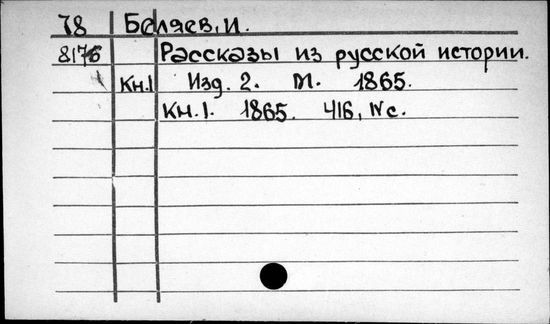 78 Беляев, И.
8176 Рассказы из русской истории.
Кн.1 Изд. 2. М. 1865.
Кн.1. 1865. 416, IV с.